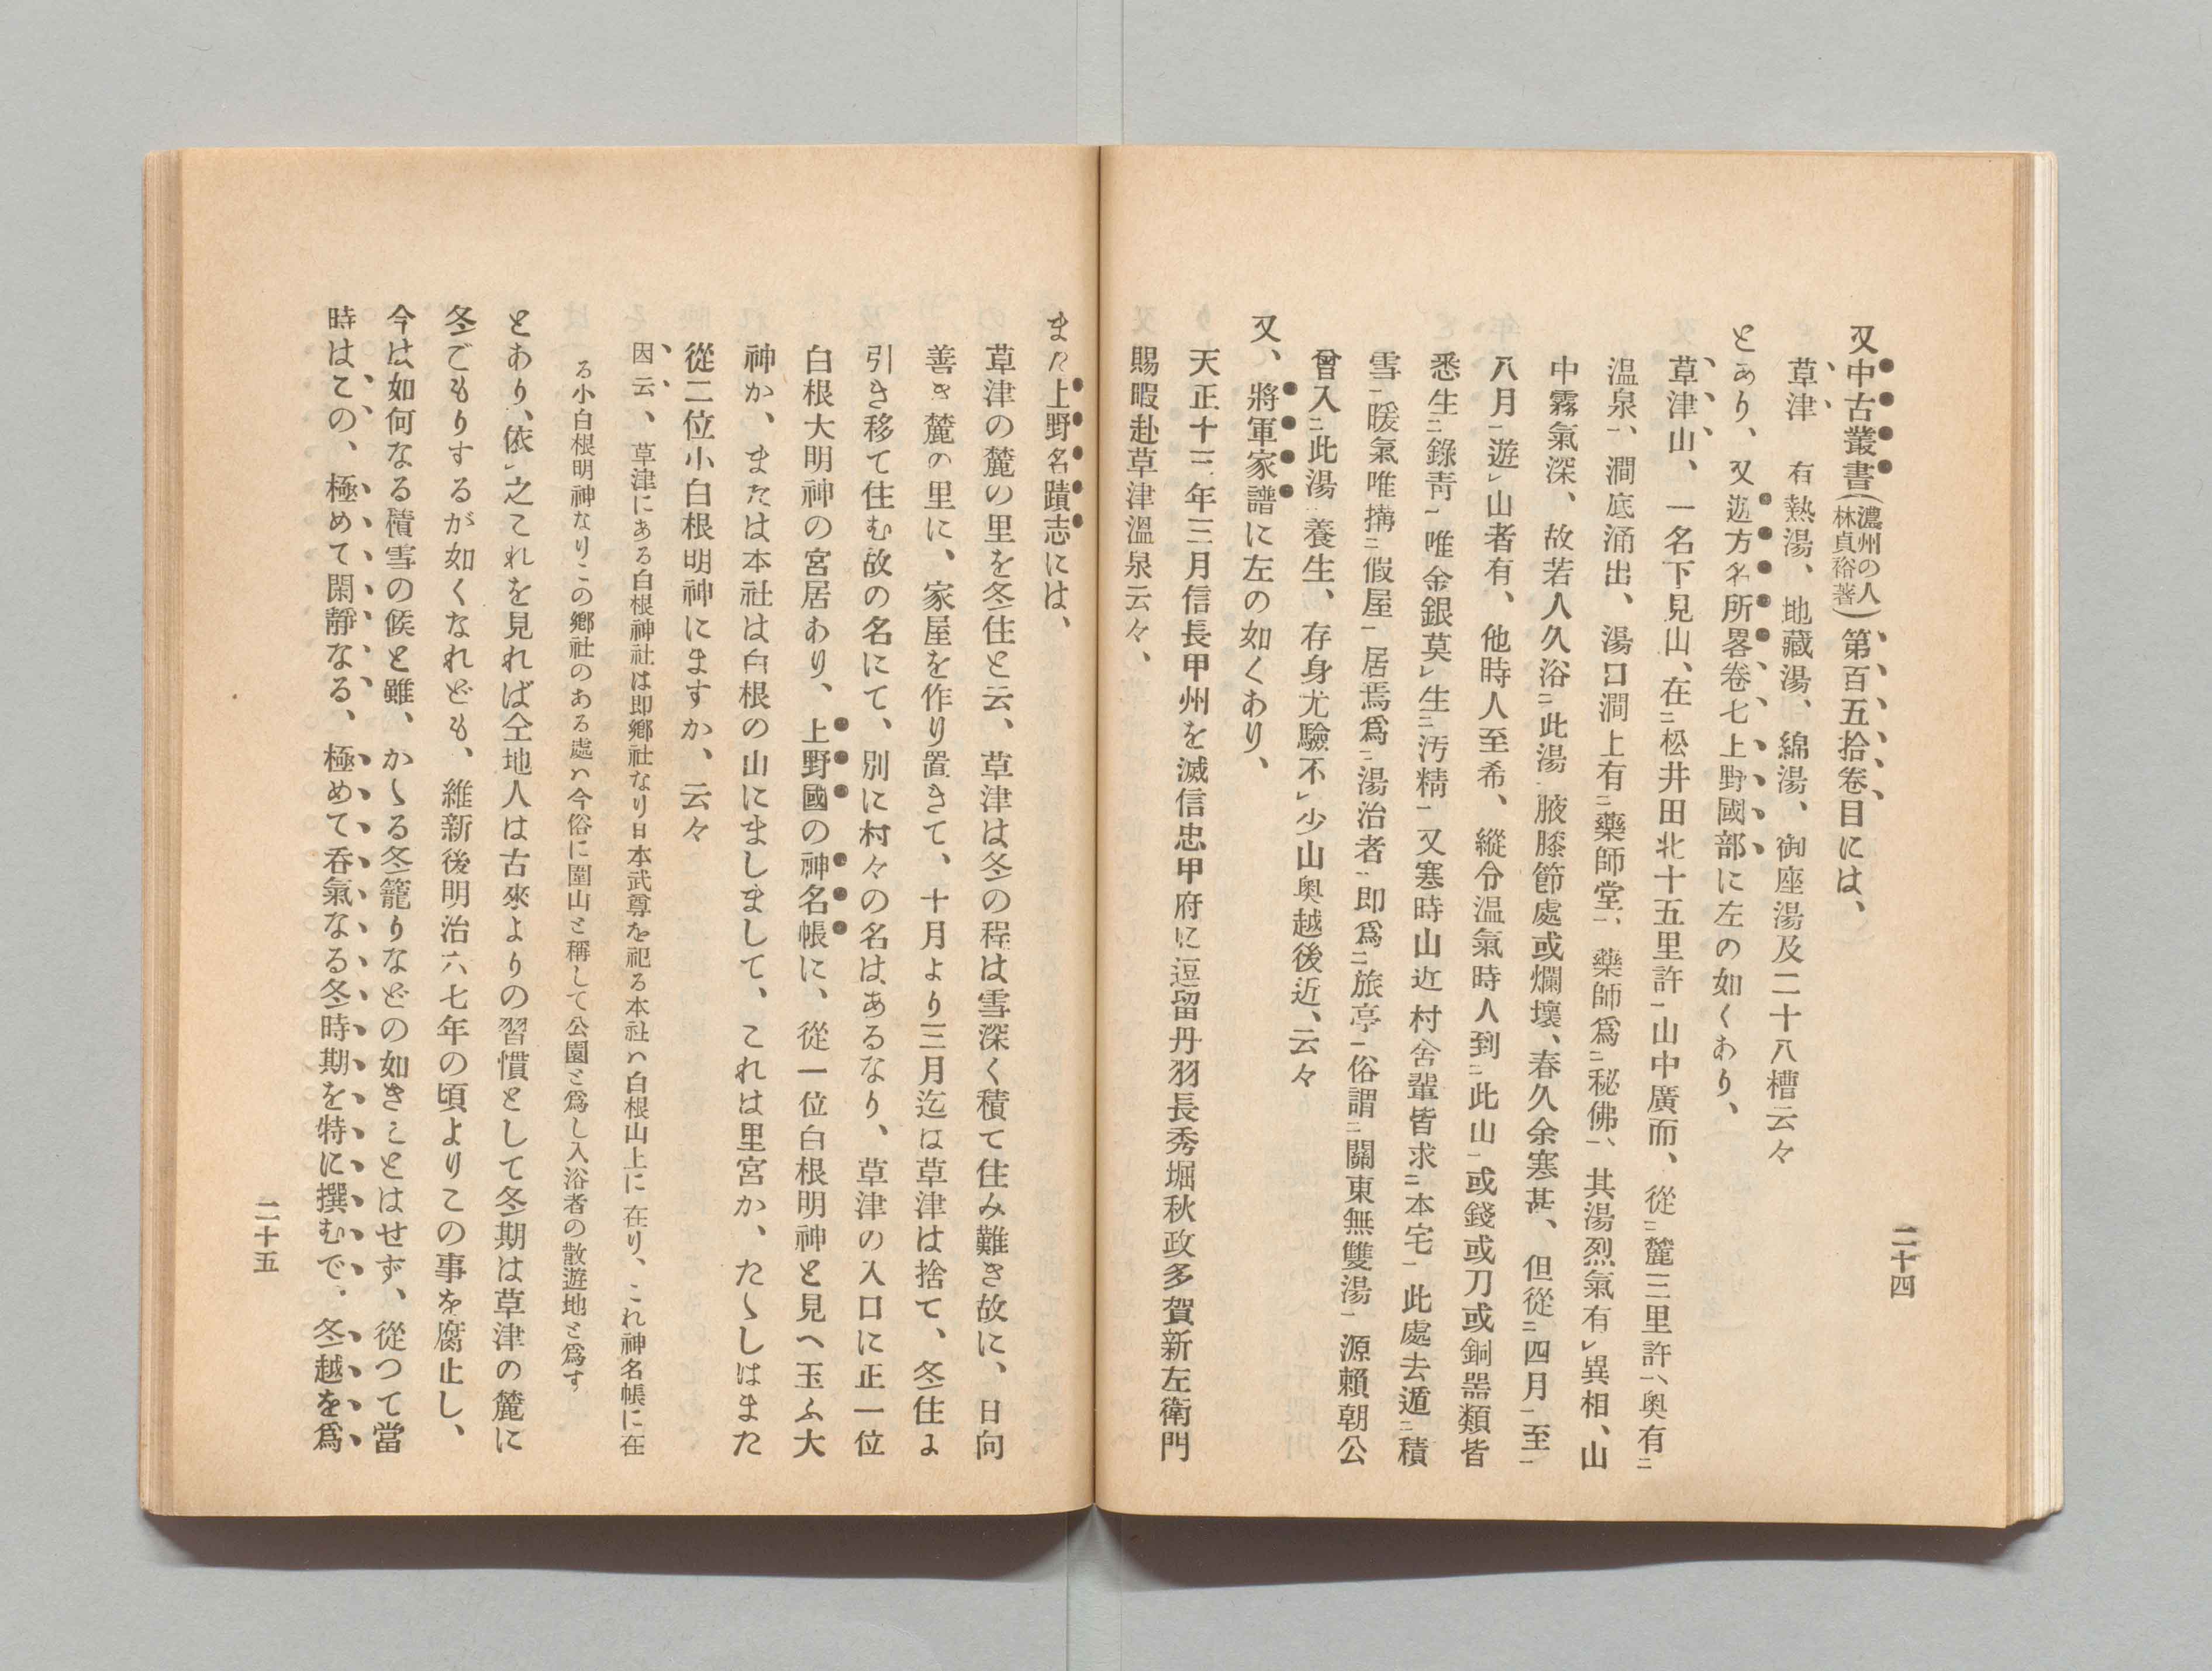 二十四
又中古叢書(濃州の人林貞裕著)第百五拾卷目には、
草津　有熱湯、地藏湯、綿湯、御座湯及二十八槽云々
とあり、又遊方名所畧卷七上野國部に左の如くあり、
草津山、一名下見山、在二松井田北十五里許一山中廣而、從二麓三里許一、奧有二
溫泉一、澗底涌出、湯口澗上有二藥師堂一、藥師爲二秘佛一、其湯烈氣有レ異相、山
中霧氣深、故若人久浴二此湯一腋膝節處或爛壞、春久余寒甚、但從二四月一至二
八月一遊レ山者有、他時人至希、縱令溫氣時人到二此山一或錢或刀或銅噐類皆
悉生二錄靑一唯金銀莫レ生二汚精一又寒時山近村舍輩皆求二本宅一此處去遁二積
雪一暖氣唯搆二假屋一居焉爲二湯治者一卽爲二旅亭一俗謂二關東無雙湯一源賴朝公
曾入二此湯一養生、存身尤驗不レ少山奧越後近、云々
又、將軍家譜に左の如くあり、
天正十三年三月信長甲州を滅信忠甲府に逗留丹羽長秀堀秋政多賀新左衛門
賜暇赴草津溫泉云々、
また上野名蹟志には、
草津の麓の里を冬住と云、草津は冬の程は雪深く積て住み難き故に、日向
善き麓の里に、家屋を作り置きて、十月より三月迄は草津は捨て、冬住ょ
引き移て住む故の名にて、別に村々の名はあるなり、草津の入口に正一位
白根大明神の宮居あり、上野國の神名帳に、從一位白根明神と見へ玉ふ大
神か、または本社は白根の山にましまして、これは里宮か、たゝしはまた
從二位小白根明神にますか、云々
因云、草津にある白根神社は卽鄕社なり日本武尊を祀る本社ハ白根山上に在り、これ神名帳に在
る小白根明神なりこの鄕社のある處ハ今俗に圍山と稱して公園と爲し入浴者の散遊地と爲す
とあり、依レ之これを見れば仝地人は古來よりの習慣として冬期は草津の麓に
冬ごもりするが如くなれども、維新後明治六七年の頃よりこの事を腐止し、
今は如何なる積雪の候と雖、かゝる冬籠りなどの如きことはせず、從つて當
時はこの、極めて閑靜なる、極めて呑氣なる冬時期を特に撰むで、冬越を爲
二十五